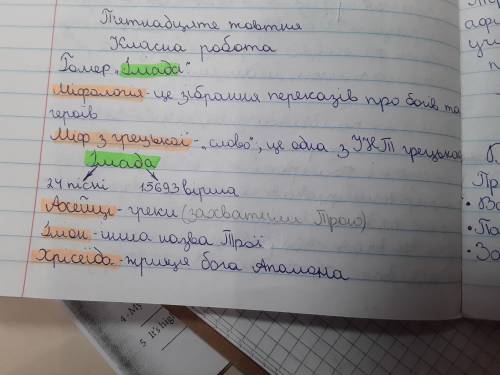 Пятнадцяте жовтня
Класна робота
Гомер „Іліада"
Міфологія - це зібрання переказів про богів та
героїв
Міф з грецької - „слово", це одна з УНТ грецької
Іліада
24 пісні 15693 вірша
Ахейці - греки (захватили Трою)
Іліон - інша назва Трої
Хрисеїда - жриця бога Аполлона
4 - My
5 It's high